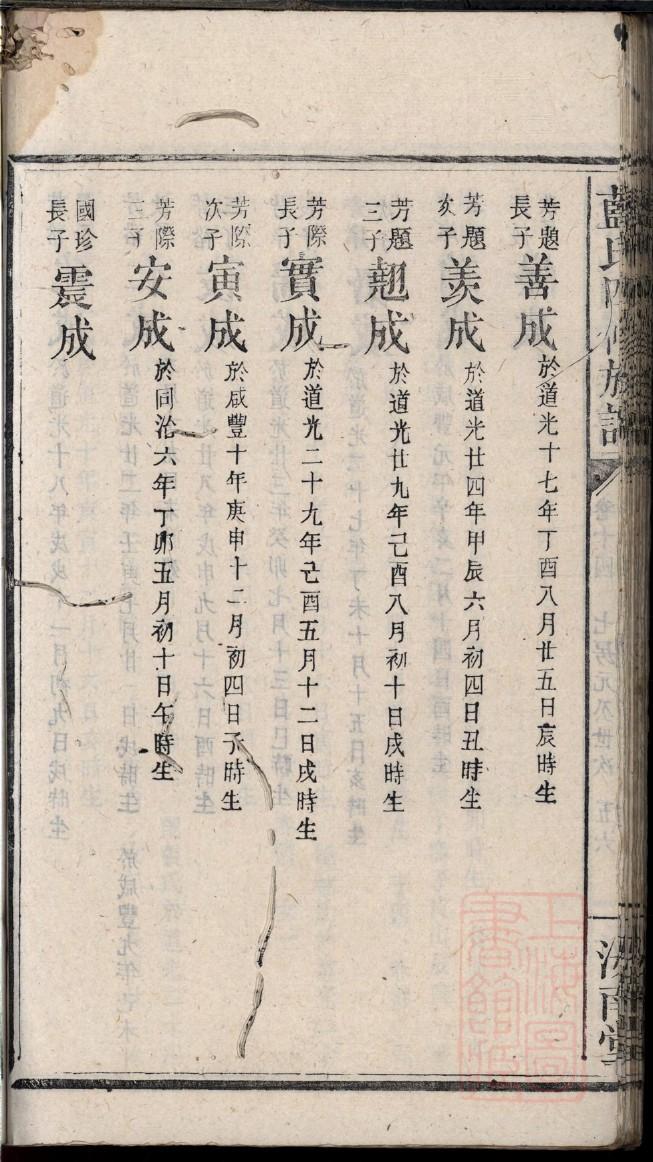 芳題長子善成於道光十七年丁酉八月廿五日辰時生
芳題次子羨成於道光廿四年甲辰六月初四日丑時生
芳題三子趐成於道光廿九年己酉八月初十日戌時生
芳際長子實成於道光二十九年己酉五月十二日戌時生
芳際次子寅成於咸豐十年庚申十二月初四日子時生
芳際三子安成於同治六年丁卯五月初十日午時生
國珍長子震成
藍氏四修族譜
汝南堂
上海圖書館藏